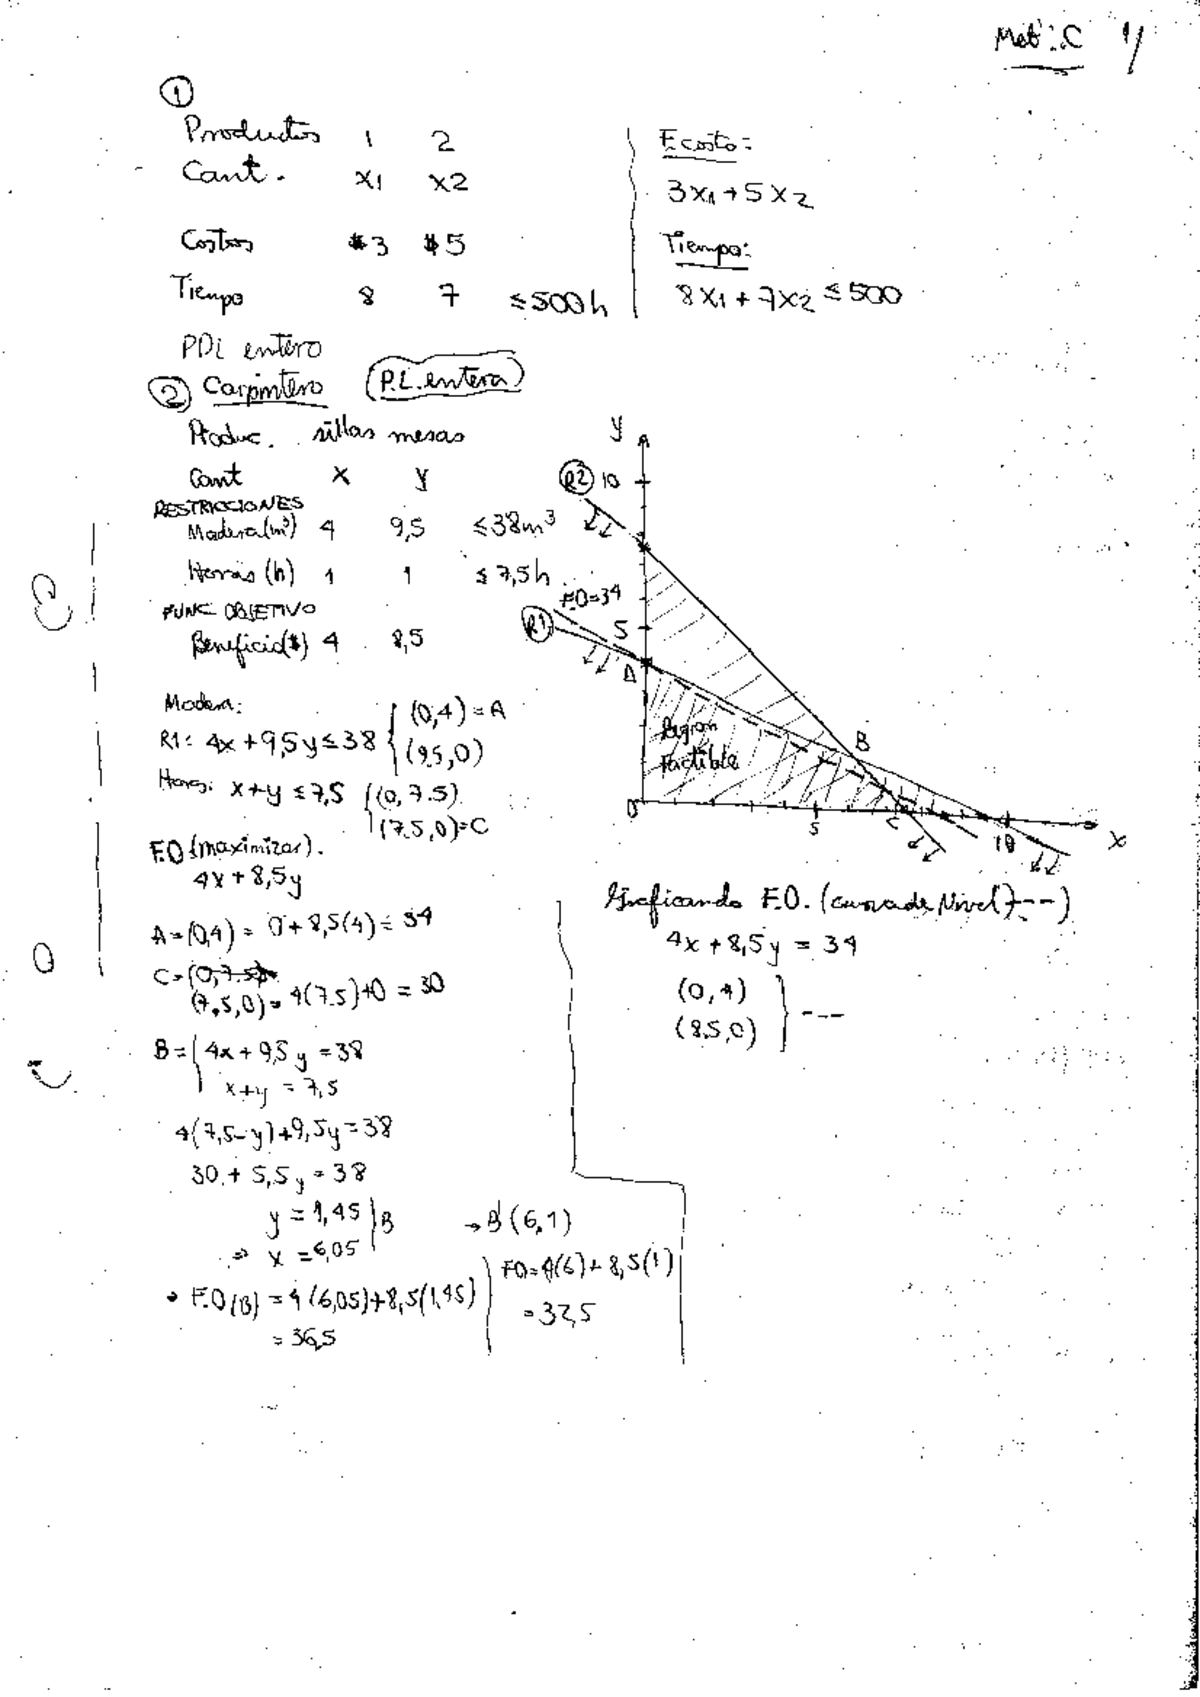 Mat: C 1/
①
Productos 1 2
Cant. x1 x2
Costos $3 $5
Tiempo 8 7 ≤500h
F. costo:
3x1+5x2
Tiempo:
8x1+7x2 ≤500
PDL entero
② Carpintero (P.L. entera)
Produc. sillas mesas
Cant x y
RESTRICCIONES
Madera(m³) 4 9,5 ≤38m³
Horas (h) 1 1 ≤7,5h
FUNC OBJETIVO
Beneficio($) 4 8,5
Madera:
R1: 4x+9,5y≤38 { (0,4)=A
(9.5,0)
Horas: x+y ≤7,5 { (0,7.5)
(7.5,0)=C
F.O (maximizar).
4x+8,5y
A=(0,4)= 0+8,5(4)=34
C=(0,7.5)
(7.5,0)=4(7.5)+0=30
B={ 4x+9,5y=38
x+y=7,5
4(7,5-y)+9,5y=38
30+5,5y=38
y=1,45 | B
⇒ x=6,05
→ B(6,1)
• F.O(B)=4(6,05)+8,5(1,45)
=36,5
FO=4(6)+8,5(1)
=32,5
y
R2 10
F.O=34
R1 5
A
Region
Factible
B
0 5 C 10 x
Graficando F.O. (curva de Nivel)---)
4x+8,5y=34
(0,4)
(8.5,0) } ---